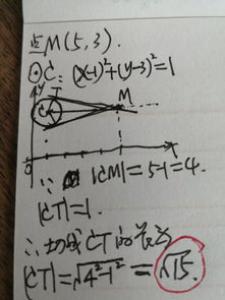 点M(5,3).
⊙C: (x-1)²+(y-3)²=1
y T
C M
0 x
∵ |CM|=5-1=4.
|CT|=1.
∴切线CT的长为
|CT|=√4²-1² = √15.